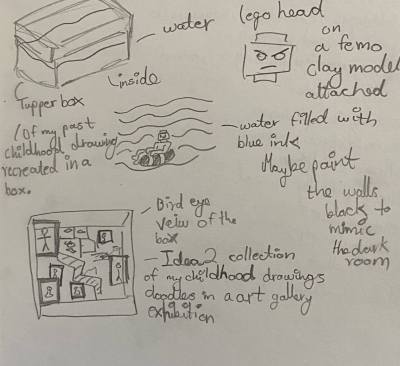 water
lego head
on
a femo
clay model
attached
inside
Tupperbox
(Of my past
childhood drawing
recreated in a
box.
water filled with
blue ink
Maybe paint
the walls
black to
mimic
the dark
room
Bird eye
veiw of the
box
Idea 2 collection
of my childhood drawings
doodles in a art gallery
exhibition